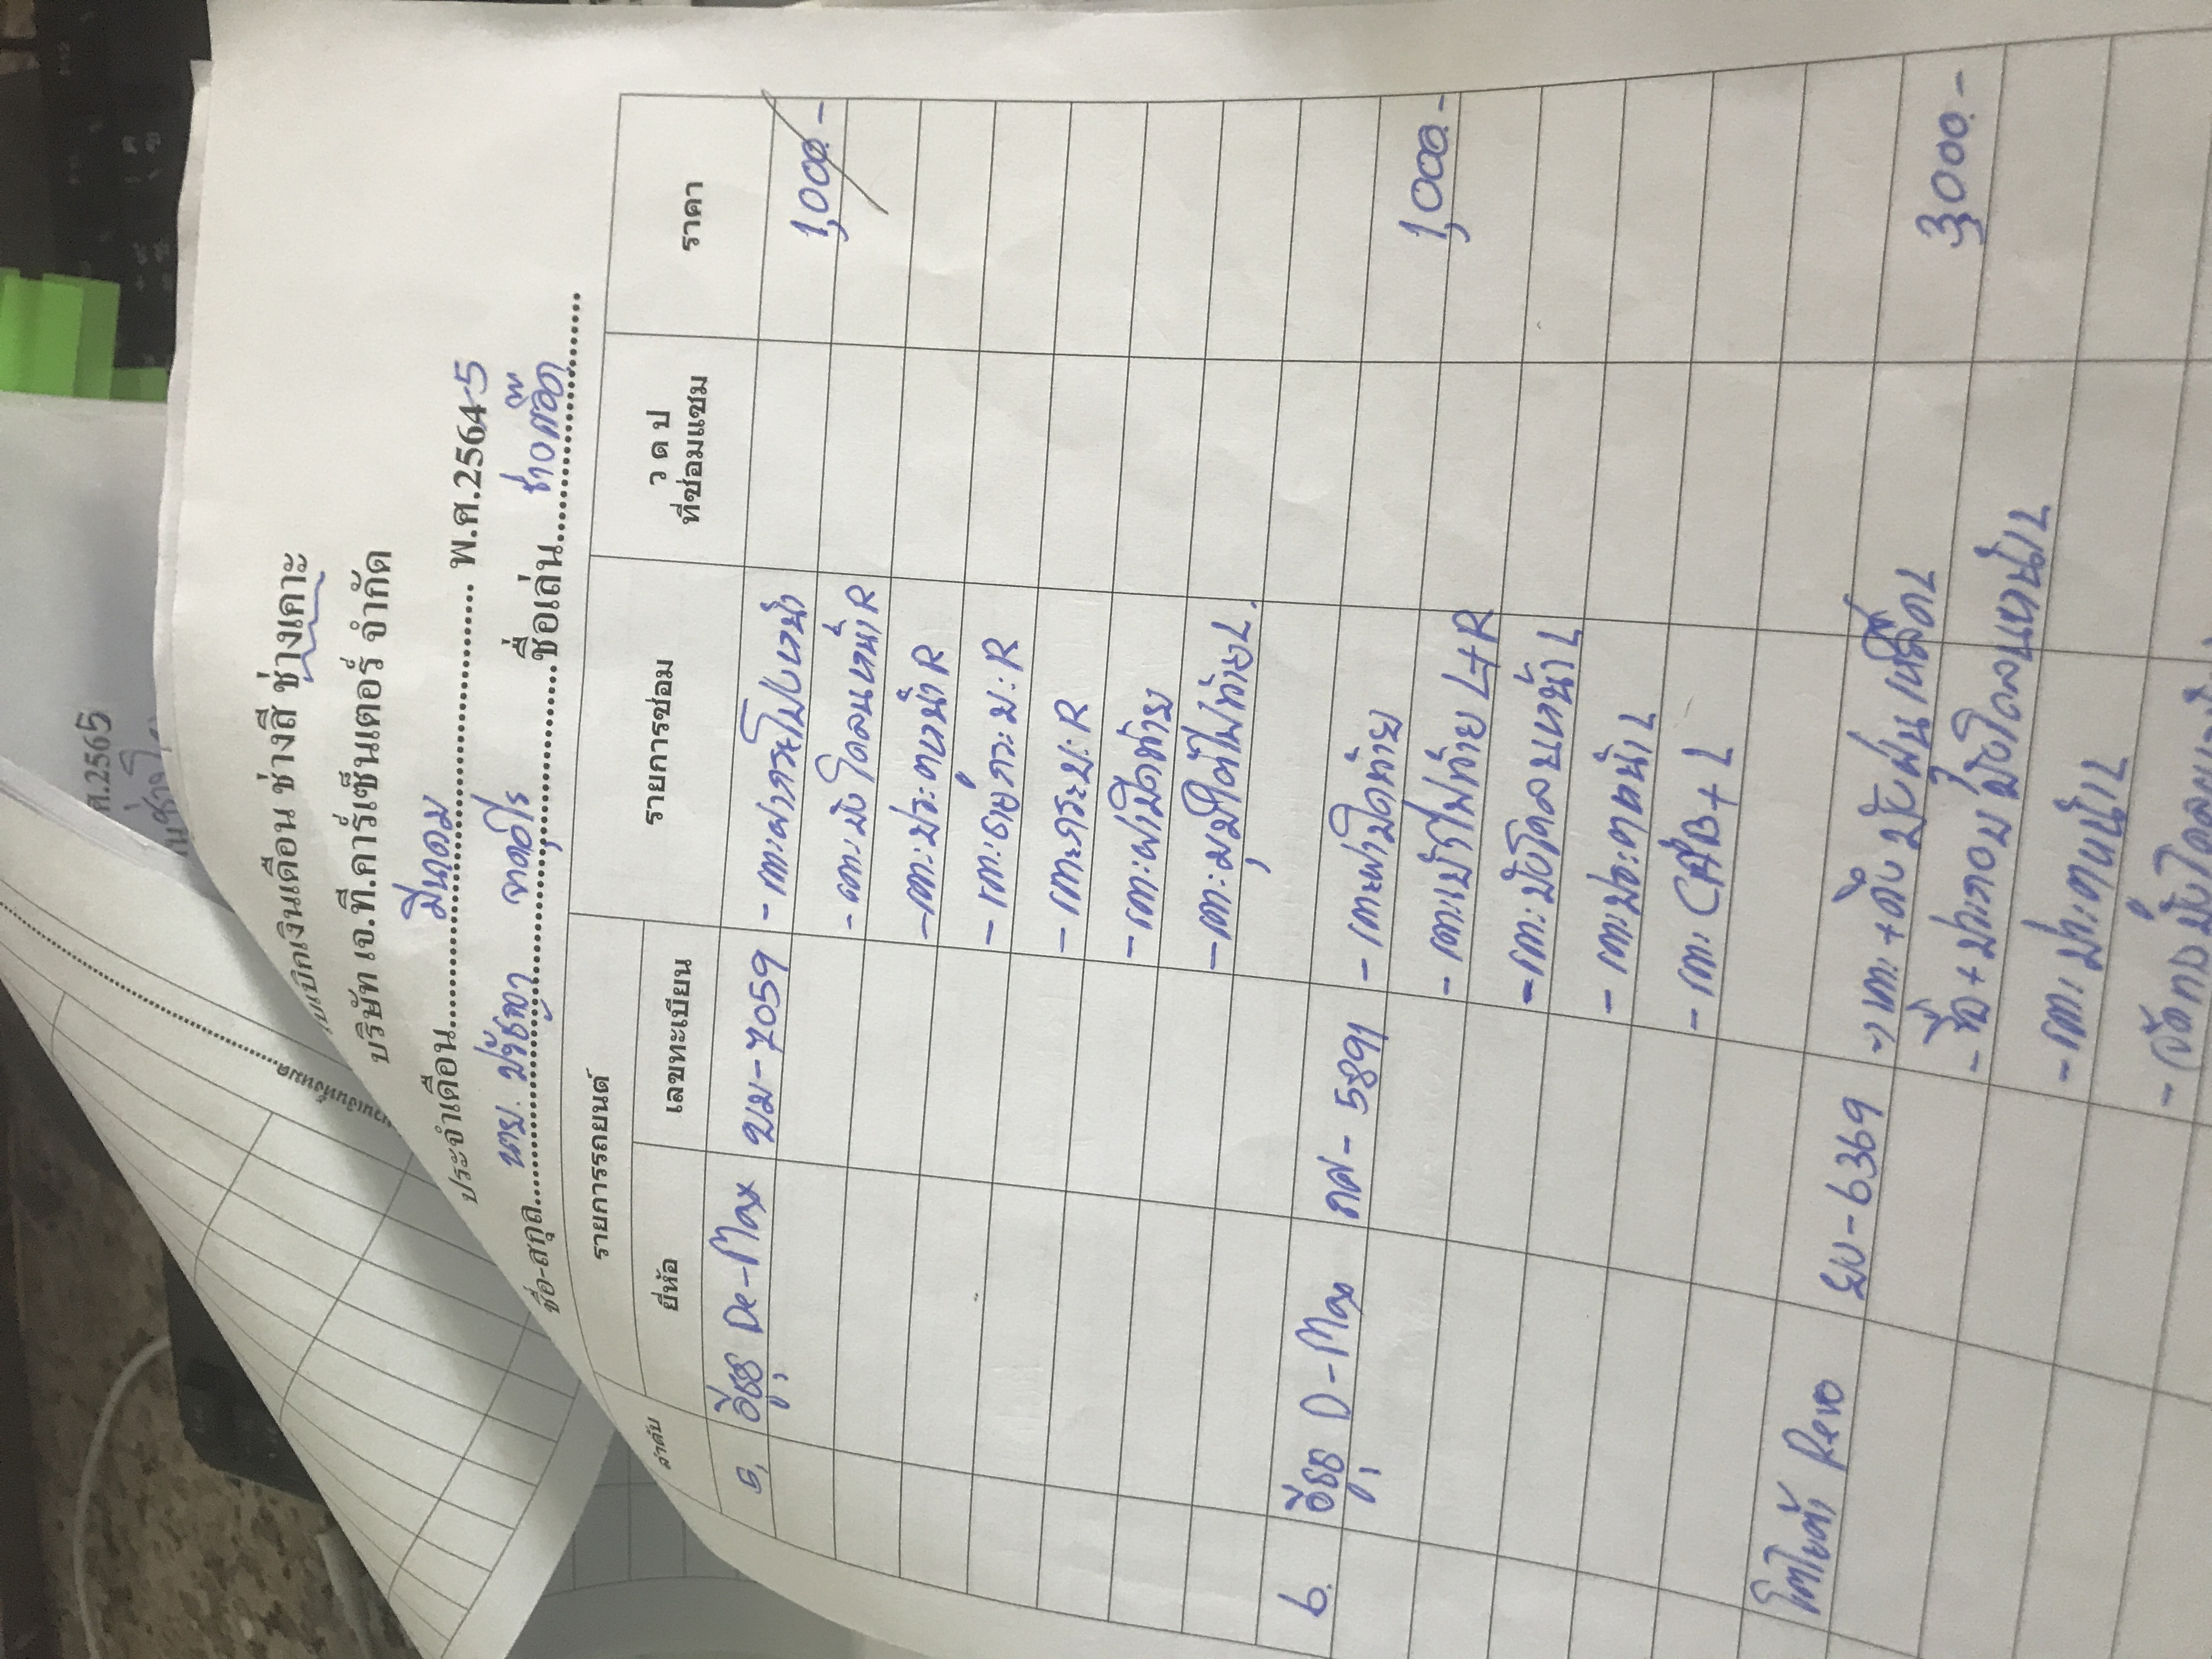 ใบเบิกเงินเดือน ช่างสี ช่างเคาะ
บริษัท เจ.ที.คาร์เซ็นเตอร์ จำกัด
ประจำเดือน มีนาคม พ.ศ.2564-5
ชื่อ-สกุล นาย. ปรัชญา ชื่อเล่น ช่างต๊อด
ลำดับ รายการรถยนต์ รายการซ่อม ว ด ป ที่ซ่อมแซม ราคา
ยี่ห้อ เลขทะเบียน
5, อีซูซุ De-Max ขม-7059 - เคาะฝากระโปรงหน้า 1,000.-
- เคาะบังโคลนหน้า R
- เคาะประตูหน้า R
- เคาะ R
- เคาะกระบะ R
- เคาะฝาปิดท้าย
- เคาะมุมใต้ไฟท้าย L.
6. อีซูซุ D-Max กศ-5891 - เคาะฝาปิดท้าย 1,000.-
- เคาะเบ้าไฟท้าย L+R
- เคาะบังโคลนหน้า L
- เคาะประตูหน้า L
- เคาะ CAB + L
โตโยต้า Revo ยบ-6369 - เคาะ+ดึง 3,000.-
บังโคลนหน้า L
- เคาะประตูหน้า L
ศ.2565